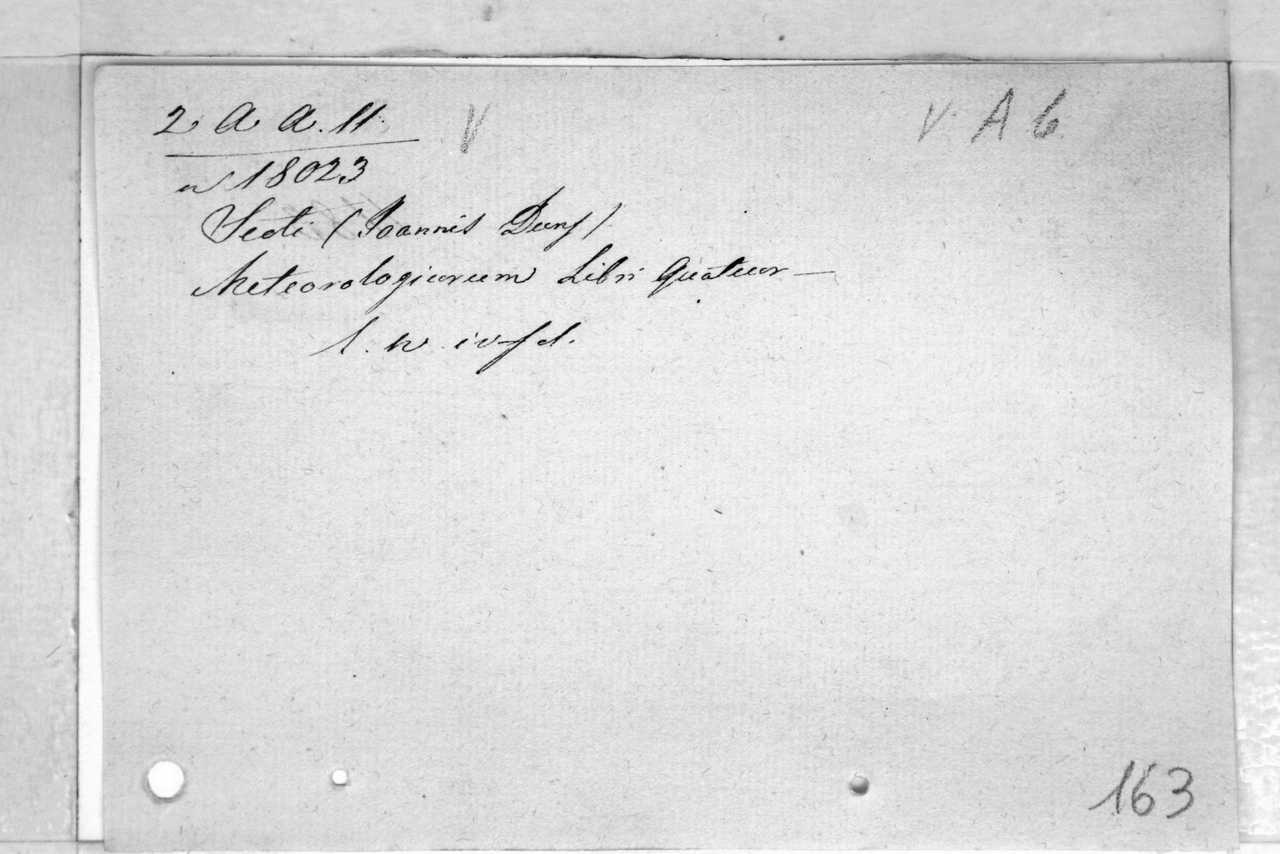 2. A A. 11. V V. A 6
n 18023
Scoti (Joannis Duns)
Meteorologicorum Libri Quatuor —
1. v. in fol.
163